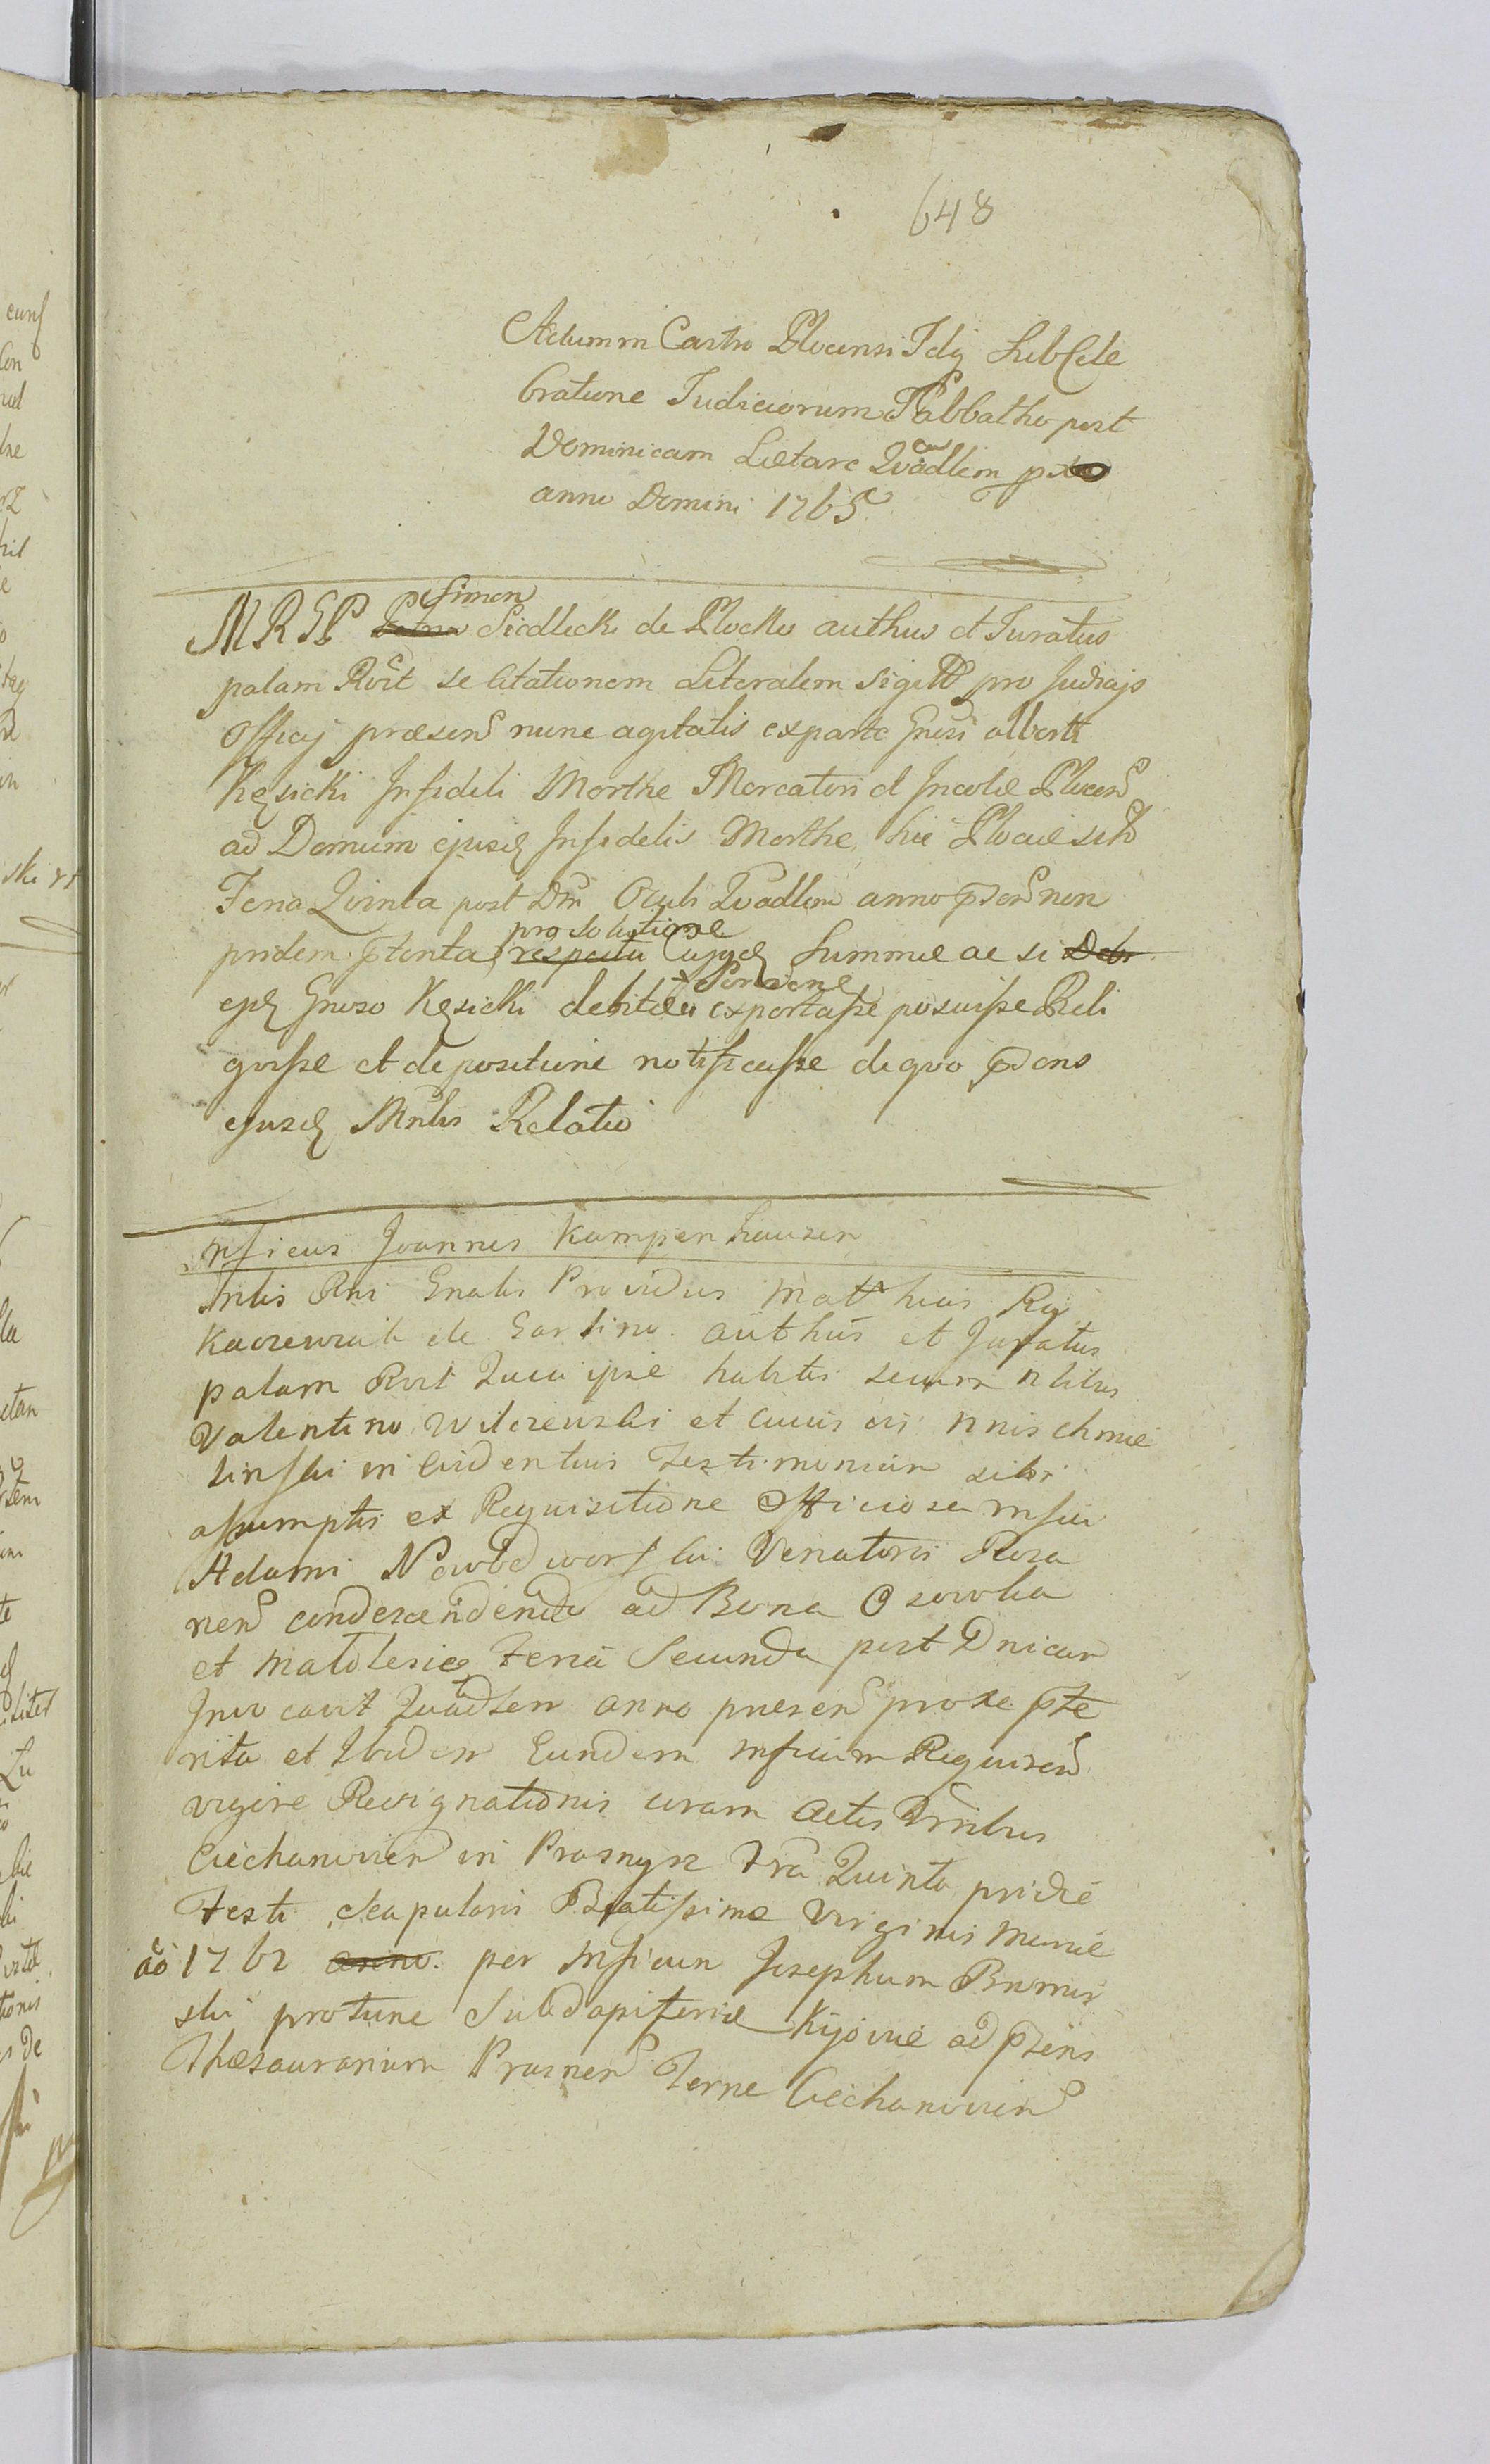 648
Actum in Castro Plocensi Idq Sub Cele
bratione Judiciorum Sabbatho post
Dominicam Lætare Qvadlem
anno Domini 1765
MRGP Simon Siedlecki de Plocko authus et Juratus
palam Rvit se Citationem Literalem Sigill pro Judicijs
Officij præsens nunc agitatis ex parte Gnosi Alberti
Kęsicki Infideli Morthe Mercatori et Incolæ Plocens
ad Domum ejusd Infidelis Morthe, hic Plociæ sit
Feria Qvinta post Dm Oculi Qvadlem anno psen non
pridem ptenta, respectu pro solutione Cujusd Summæ ac si Deb
ejd Gnoso Kęsicki debitæ exportasse posuisse Reli
qvisse et depositione notificasse de qvo psens
ejusd Mnlis Relatio
Mficus Joannes Kampenhausen
Mnlis Rni Gnalis Providus Matthias
de Garlino. authus et Juratus
palam Rvit Quia ipse habitis secum nlibus
Valentino Wilczewski et
linski in Evidentius Testimonium sibi
assumptis ex Requisitione Officiosa Mfici
Adami Nowodworski Venatoris Roza
nens condescendendo ad Bona Osowka
et Matolesie Feria Secunda post Dnicam
Invocavit Quadlem anno præsen proxe pte
rita et Ibidem Eundem Mficum Requiren
vigore Resignationis coram Actis Trribus
Ciechanovien in Prasnysz Fria Quinta pridie
Festi Scapularis Beatissimæ Virginis Mariæ
ao 1762 anno. per Mficum Josephum
ski protunc Subdapiferiæ Kijoviæ ad psens
Thesaurarium Prasnens Terræ Ciechanovien